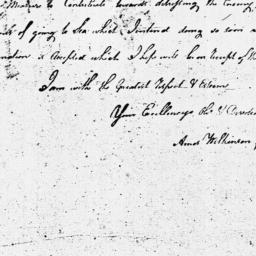 Measure to Contribute towards distressing the Enemy
of going to Sea which I intend doing so soon a
is Accepted which I hope will be on receipt of th
I am with the Greatest Respect & Esteem
Your Excellencys Obt. &
Amos Wilkinson